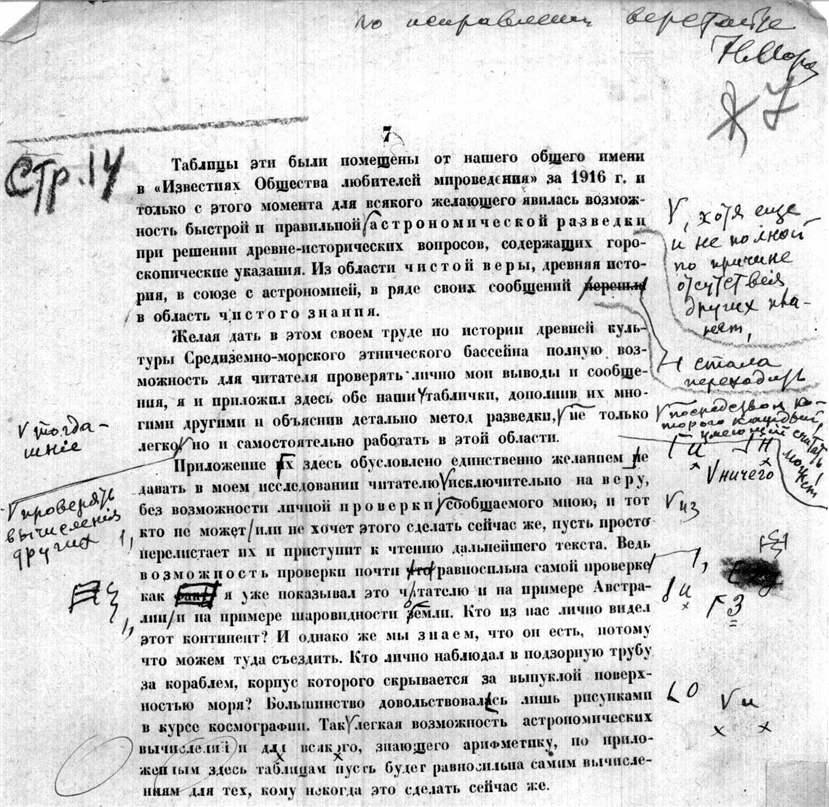 по исправлении верстайте
НМороз
7
Стр. 14
Таблицы эти были помещены от нашего общего имени
в «Известиях Общества любителей мироведения» за 1916 г. и
только с этого момента для всякого желающего явилась возмож-
ность быстрой и правильной астрономической разведки
при решении древне-исторических вопросов, содержащих горо-
скопические указания. Из области чистой веры, древняя исто-
рия, в союзе с астрономией, в ряде своих сообщений перешла
в область чистого знания.
V, хотя еще
и не полной
по причине
отсутствия
других пла-
нет,
стала
переходить
Желая дать в этом своем труде по истории древней куль-
туры Средиземно-морского этнического бассейна полную воз-
можность для читателя проверять лично мои выводы и сообще-
ния, я и приложил здесь обе наши таблички, дополнив их мно-
гими другими и объяснив детально метод разведки, не только
легко, но и самостоятельно работать в этой области.
V тогда-
шние
V посредством ко-
торого каждый,
умеющий считать
может
Приложение их здесь обусловлено единственно желанием не
давать в моем исследовании читателю исключительно на веру,
без возможности личной проверки сообщаемого мною, и тот
кто не может или не хочет этого сделать сейчас же, пусть просто
перелистает их и приступит к чтению дальнейшего текста. Ведь
возможность проверки почти что равносильна самой проверке
как факт я уже показывал это читателю и на примере Австра-
лии и на примере шаровидности земли. Кто из нас лично видел
этот континент? И однако же мы знаем, что он есть, потому
что можем туда съездить. Кто лично наблюдал в подзорную трубу
за кораблем, корпус которого скрывается за выпуклой поверх-
ностью моря? Большинство довольствовалась лишь рисунками
в курсе космографии. Так легкая возможность астрономических
вычислений и для всякого, знающего арифметику, по прило-
женным здесь таблицам пусть будет равносильна самим вычисле-
ниям для тех, кому некогда это сделать сейчас же.
V проверять
вычисления
других
V ничего
V из
з
о
V и